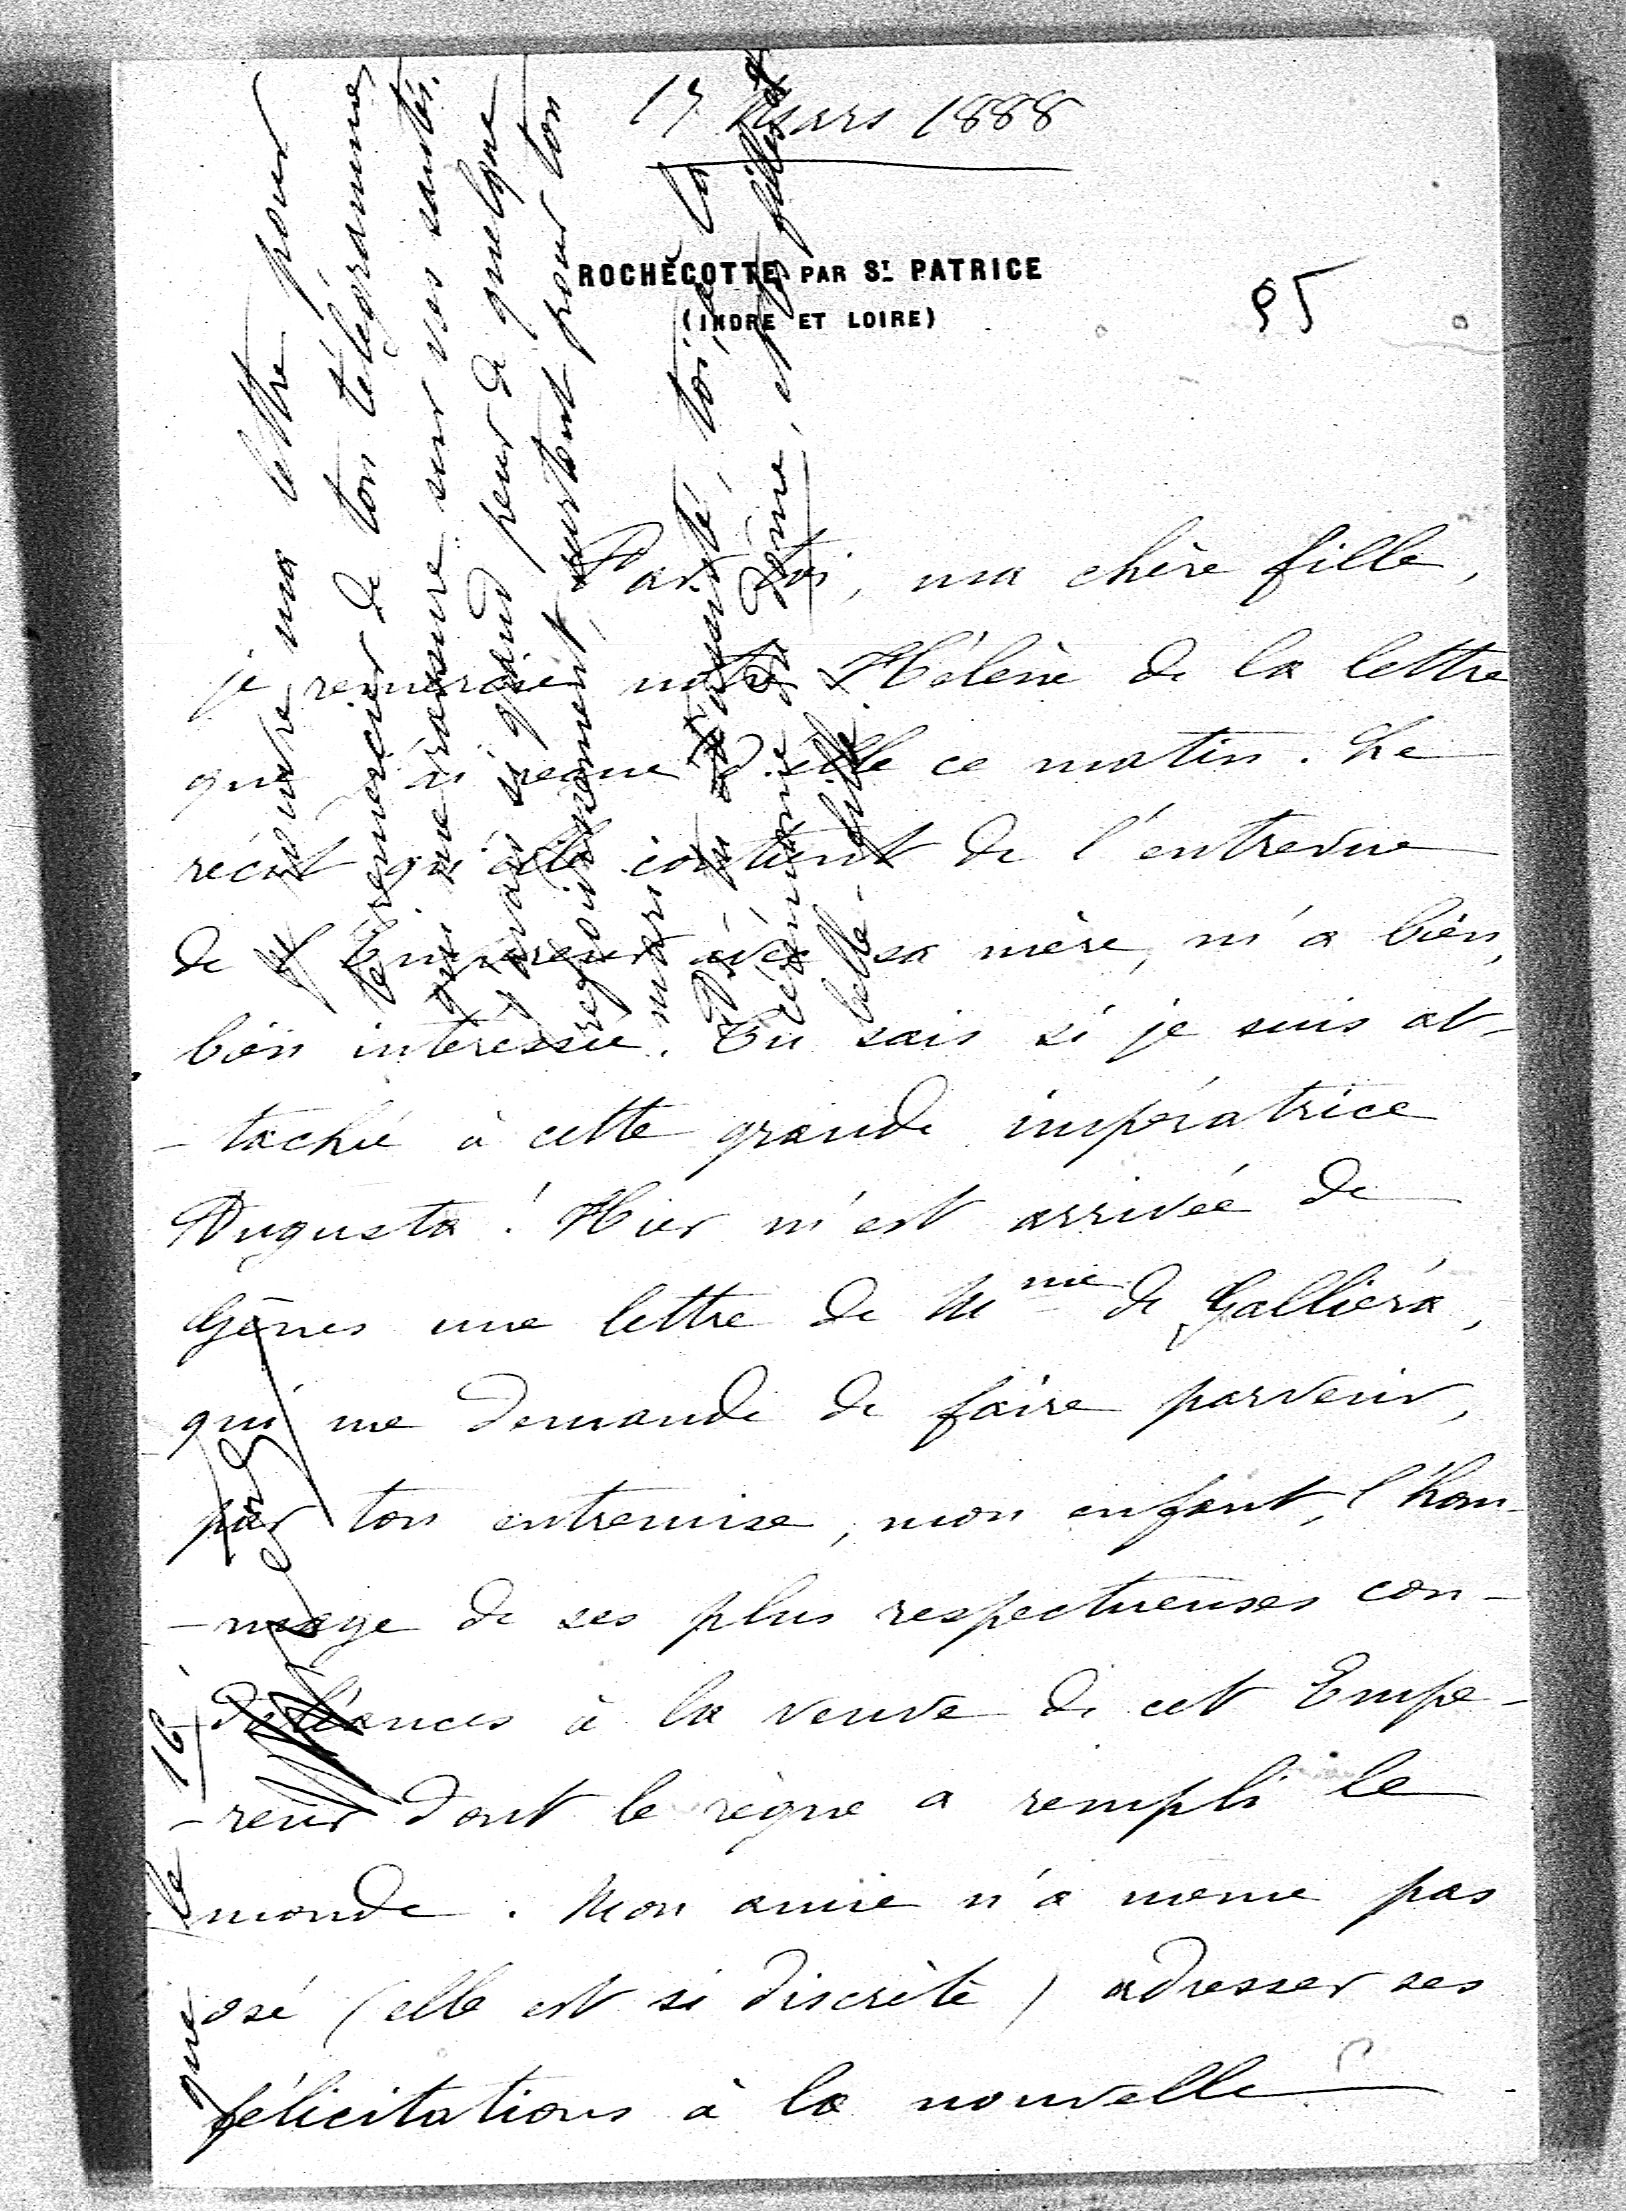 17 Mars 1888
ROCHECOTTE, PAR St. PATRICE
(INDRE ET LOIRE)
95
Par toi, ma chère fille,
je remercie notre Hélène de la lettre
que j'ai reçue d'elle ce matin. Le
récit qu'elle contient de l'entrevue
de l'Empereur avec sa mère, m'a bien,
bien intéressée. Tu sais si je suis at-
-tachée à cette grande impératrice
Augusta! Hier m'est arrivée de
Gênes une lettre de Mme de Galliera,
qui me demande de faire parvenir,
par ton entremise, mon enfant, l'hom-
-mage de ses plus respectueuses con-
-doléances à la veuve de cet Empe-
-reur dont le règne a rempli le
monde. Mon amie n'a même pas
osé (elle est si discrète) adresser ses
félicitations à la nouvelle
Je rouvre ma lettre pour
te remercier de ton télégramme
qui me rassure sur vos santés.
J'avais si grand peur de quelque
refroidissement, surtout pour ton
mari
toi, à la
cérémonie du Dôme, et ta fille et
belle-fille.
que le 16